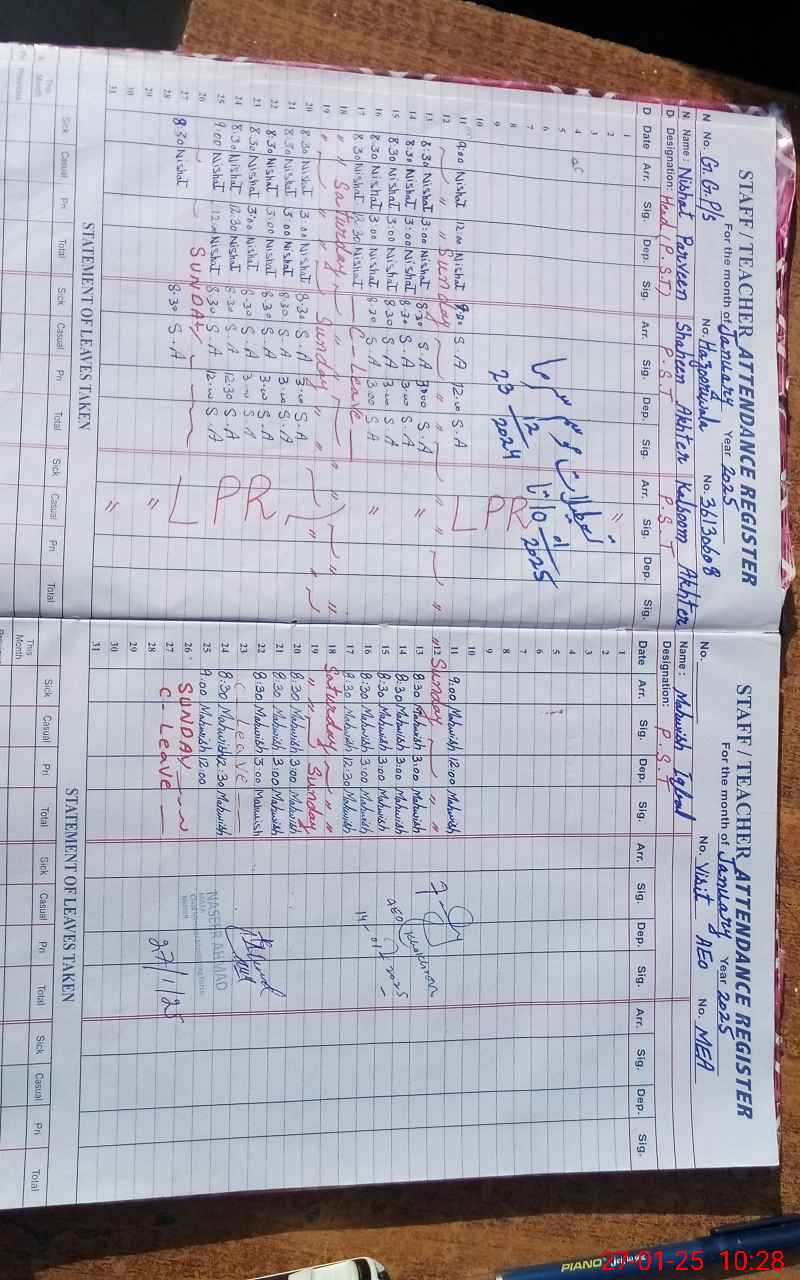 STAFF / TEACHER ATTENDANCE REGISTER
For the month of January Year 2025
N No. G.G.P/s No. No. 36130608
N: Name: Nishat Parveen Shaheen Akhter Kalsoom Akhter
D Designation: Head (P.S.T) P.S.T P.S.T
D Date Arr. Sig. Dep. Sig. Arr. Sig. Dep. Sig. Arr. Sig. Dep. Sig.
1
2 "
3
4
5
6
7
8 23/12/2024 10/1/2025
9
10 LPR
11 9:00 Nishat 12:00 Nishat 9:00 S.A 12:00 S.A
12 " " Sunday " " "
13 8:30 Nishat 3:00 Nishat 8:30 S.A 3:00 S.A "
14 8:30 Nishat 3:00 Nishat 8:30 S.A 3:00 S.A
15 8:30 Nishat 3:00 Nishat 8:30 S.A 3:00 S.A
16 8:30 Nishat 3:00 Nishat 8:30 S.A 3:00 S.A "
17 8:30 Nishat 12:30 Nishat C-Leave
18 " " Saturday " "
19 " " " Sunday " " " "
20 8:30 Nishat 3:00 Nishat 8:30 S.A 3:00 S.A
21 8:30 Nishat 3:00 Nishat 8:30 S.A 3:00 S.A
22 8:30 Nishat 3:00 Nishat 8:30 S.A 3:00 S.A LPR
23 8:30 Nishat 3:00 Nishat 8:30 S.A 3:00 S.A
24 8:30 Nishat 12:30 Nishat 8:30 S.A 12:30 S.A
25 9:00 Nishat 12:00 Nishat 8:30 S.A 12:00 S.A
26 SUNDAY
27 8:30 Nishat 8:30 S.A L
28
29 "
30
31 "
STATEMENT OF LEAVES TAKEN
Sick Casual Pri Total Sick Casual Pri Total Sick Casual Pri Total
This Month
Previous
STAFF / TEACHER ATTENDANCE REGISTER
For the month of January Year 2025
No. No. Visit AEO No. MEA
Name: Mahwish Iqbal
Designation: P.S.T
Date Arr. Sig. Dep. Sig. Arr. Sig. Dep. Sig. Arr. Sig. Dep. Sig.
1
2
3
4
5
6
7
8
9
10
11 9:00 Mahwish 12:00 Mahwish
12 " Sunday " "
13 8:30 Mahwish 3:00 Mahwish
14 8:30 Mahwish 3:00 Mahwish AEO
15 8:30 Mahwish 3:00 Mahwish
16 8:30 Mahwish 3:00 Mahwish 14-01-2025
17 8:30 Mahwish 12:30 Mahwish
18 Saturday " "
19 " " Sunday
20 8:30 Mahwish 3:00 Mahwish
21 8:30 Mahwish 3:00 Mahwish
22 8:30 Mahwish 3:00 Mahwish
23 C - Leave
24 8:30 Mahwish 12:30 Mahwish NASEER AHMAD
25 9:00 Mahwish 12:00
26 SUNDAY
27 C-Leave 27/1/25
28
29
30
31
STATEMENT OF LEAVES TAKEN
Sick Casual Pri Total Sick Casual Pri Total Sick Casual Pri Total
This Month
PIANO
27-01-25 10:28